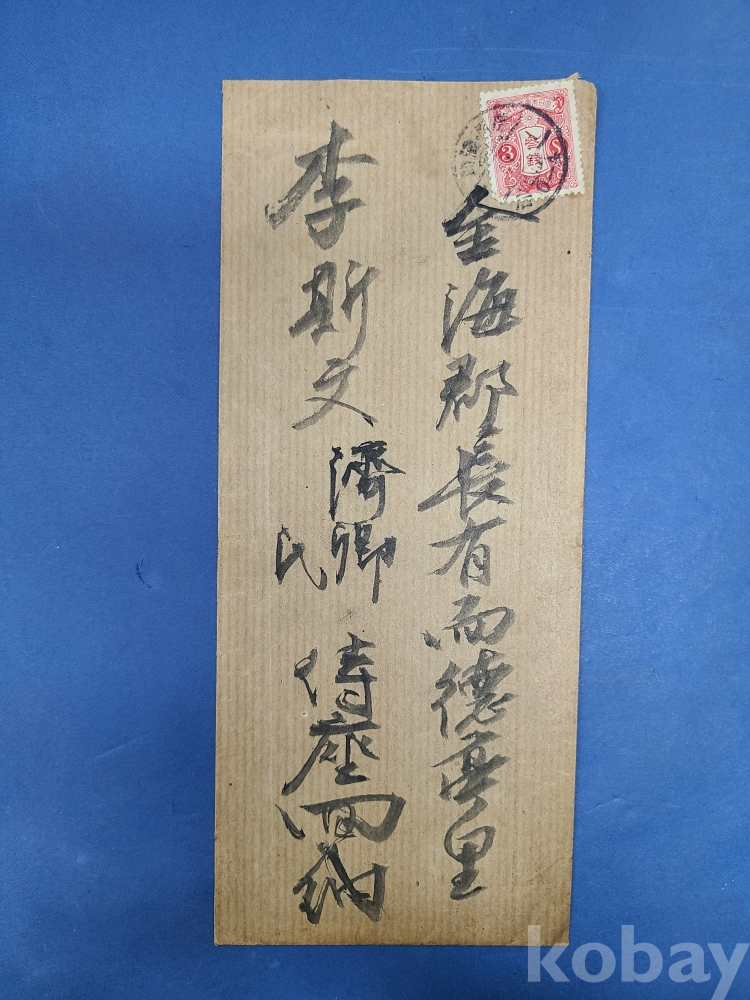 金海郡長有面德亭里
李斯文濟卿氏
侍座回納
3
参錢
kobay